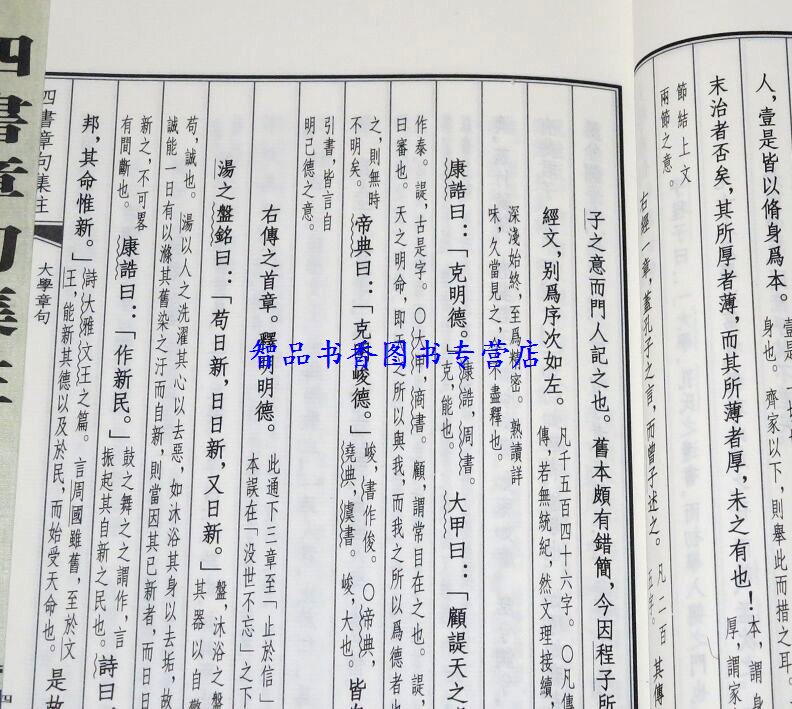 人，壹是皆以脩身爲本。
壹是，一切
身也。齊家以下，則舉此而措之耳。
末治者否矣，其所厚者薄，而其所薄者厚，未之有也！
本，謂身
厚，謂家
節結上文
兩節之意。
右經一章，蓋孔子之言，而曾子述之。
凡二百
五字。
其傳
子之意而門人記之也。舊本頗有錯簡，今因程子所
經文，別爲序次如左。
凡千五百四十六字。○凡傳
傳，若無統紀，然文理接續，
深淺始終，至爲精密。熟讀詳
味，久當見之，不盡釋也。
康誥曰：「克明德。」
康誥，周書。
克，能也。
大甲曰：「顧諟天之
作泰。諟，古是字。○大甲，商書。顧，謂常目在之也。諟，
曰審也。天之明命，即天之所以與我，而我之所以爲德者也
之，則無時
不明矣。
帝典曰：「克明峻德。」
峻，書作俊。○帝典，
堯典，虞書。峻，大也。
皆
引書，皆言自
明己德之意。
右傳之首章。釋明明德。
此通下三章至「止於信」
本誤在「沒世不忘」之下
湯之盤銘曰：「苟日新，日日新，又日新。」
盤，沐浴之盤
其器以自警
苟，誠也。湯以人之洗濯其心以去惡，如沐浴其身以去垢，故
誠能一日有以滌其舊染之汙而自新，則當因其已新者，而日日
新之，不可畧
有間斷也。
康誥曰：「作新民。」
鼓之舞之之謂作，言
振起其自新之民也。
詩曰
邦，其命惟新。」
詩大雅文王之篇。言周國雖舊，至於文
王，能新其德以及於民，而始受天命也。
是故
四書章句集注
大學章句
四
四書章句集注
智品书香图书专营店